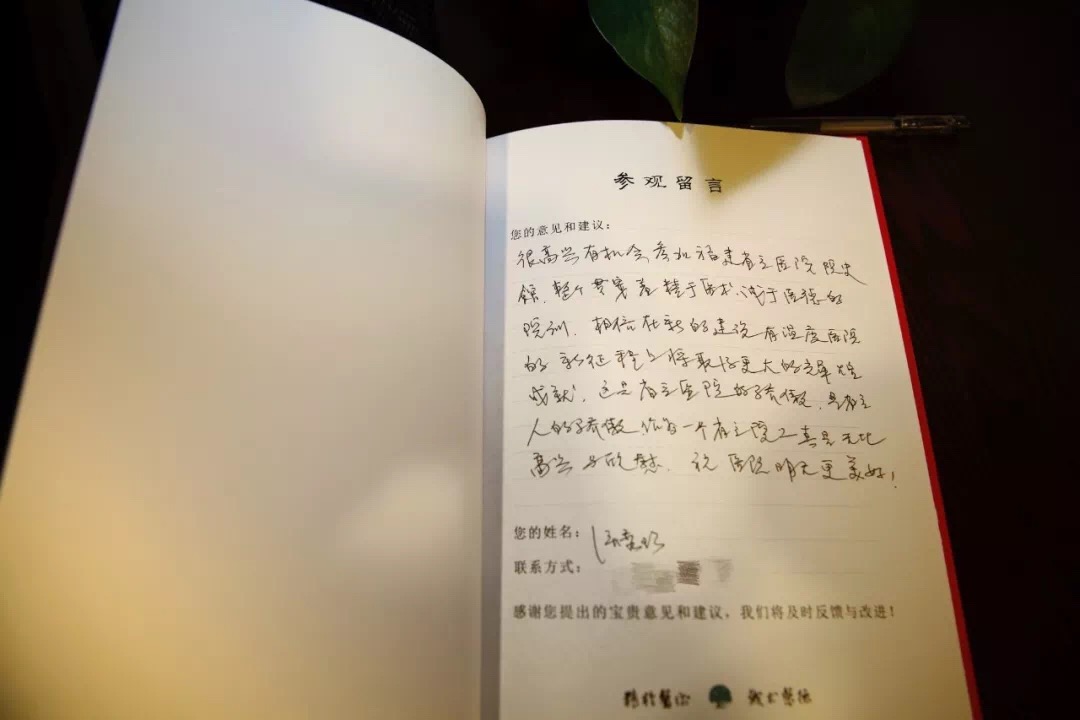 参观留言
您的意见和建议：
很高兴有机会参加福建省立医院院史
馆，整个贯穿着精于医术、诚于医德的
院训，相信在新的建设有温度医院
的新征程上将取得更大的辉煌
成就，这是省立医院的骄傲，是省立
人的骄傲，作为一个省立院工真是无比
高兴与欣慰，祝医院明天更美好！
您的姓名：
联系方式：
感谢您提出的宝贵意见和建议，我们将及时反馈与改进！
精于医术 诚于医德